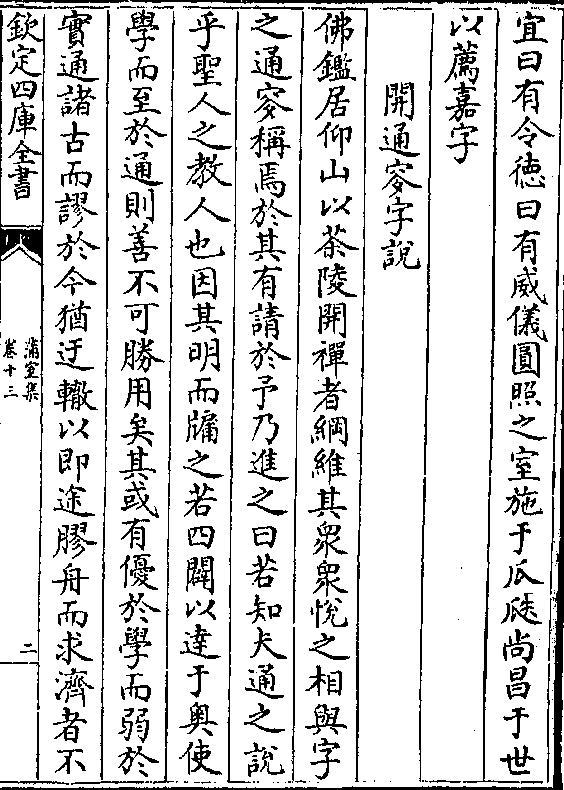 宜曰有令徳曰有威儀圓照之室施于瓜瓞尚昌于世
以薦嘉字
開通窔字說
佛鑑居仰山以茶陵開禪者綱維其衆衆悅之相與字
之通窔稱焉於其有請於予乃進之曰若知夫通之說
乎聖人之教人也因其明而牖之若四闢以達于奥使
學而至於通則善不可勝用矣其或有優於學而弱於
實通諸古而謬於今猶迂轍以即途膠舟而求濟者不
欽定四庫全書
蒲室集
卷十三
二